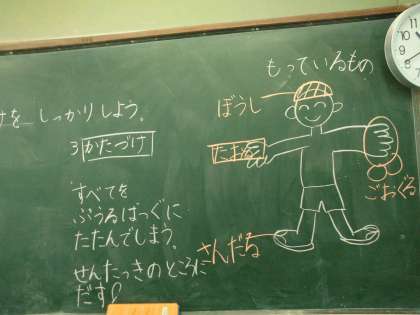 けを しっかりしよう。
3 かたづけ
すべてを
ぷうるばっぐに
たたんでしまう。
せんたっきのところに
だす
もっているもの
ぼうし
たおる
ごおぐる
さんだる
10
9
8